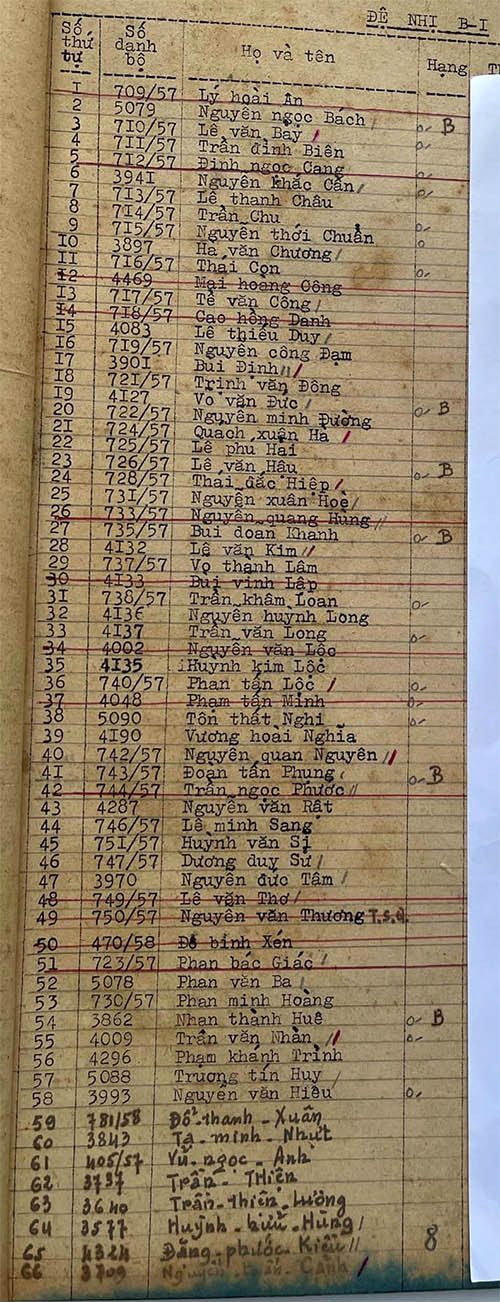 ĐỆ NHỊ B-I
Số thứ tự Số danh bộ Họ và tên Hạng
I 709/57 Lý hoài Ân
2 5079 Nguyễn ngọc Bách
3 7I0/57 Lê văn Bảy o- B
4 7II/57 Trần đình Biên o-
5 7I2/57 Đinh ngọc Cang
6 394I Nguyễn khắc Cần o-
7 7I3/57 Lê thanh Châu o-
8 7I4/57 Trần Chu
9 7I5/57 Nguyễn thới Chuẩn o-
I0 3897 Hà văn Chương o
II 7I6/57 Thái Con o-
I2 4469 Mai hoàng Công
I3 7I7/57 Tề văn Công
I4 7I8/57 Cao hồng Danh
I5 4083 Lê thiều Duy
I6 7I9/57 Nguyễn công Đạm
I7 390I Bùi Định
I8 72I/57 Trịnh văn Đông
I9 4I27 Võ văn Đức
20 722/57 Nguyễn minh Đường o- B
2I 724/57 Quách xuân Hà
22 725/57 Lê phú Hải
23 726/57 Lê văn Hậu
24 728/57 Thái đắc Hiệp o- B
25 73I/57 Nguyễn xuân Hoè
26 733/57 Nguyễn quang Hùng
27 735/57 Bùi doan Khanh o- B
28 4I32 Lê văn Kim
29 737/57 Võ thành Lâm
30 4I33 Bùi vĩnh Lập
3I 738/57 Trần khâm Loan o-
32 4I36 Nguyễn huỳnh Long
33 4I37 Trần văn Long o-
34 4002 Nguyễn văn Lộc
35 4I35 Huỳnh kim Lộc
36 740/57 Phan tấn Lộc o-
37 4048 Phạm tấn Minh o-
38 5090 Tôn thất Nghi o-
39 4I90 Vương hoài Nghĩa
40 742/57 Nguyễn quan Nguyên
4I 743/57 Đoàn tấn Phụng o- B
42 744/57 Trần ngọc Phước
43 4287 Nguyễn văn Rật
44 746/57 Lê minh Sang
45 75I/57 Huỳnh văn Sĩ
46 747/57 Dương duy Sử
47 3970 Nguyễn đức Tâm
48 749/57 Lê văn Thơ
49 750/57 Nguyễn văn Thương T.S.Q.
50 470/58 Đỗ bình Xén
51 723/57 Phan bác Giác
52 5078 Phan văn Ba
53 730/57 Phan minh Hoàng
54 3862 Nhan thành Huê o- B
55 4009 Trần văn Nhàn o-
56 4296 Phạm khánh Trình
57 5088 Trương tín Huy
58 3993 Nguyễn văn Hiếu o-
59 781/58 Đỗ-thanh-Xuân
60 3843 Tạ-minh-Nhựt
61 405/57 Vũ-ngọc-Anh
62 3737 Trần-THiện
63 3640 Trần-thiện-Lường
64 3577 Huỳnh-hữu-Hùng
65 4324 Đặng-phước-Kiều 8
66 3709 Nguyễn Cảnh